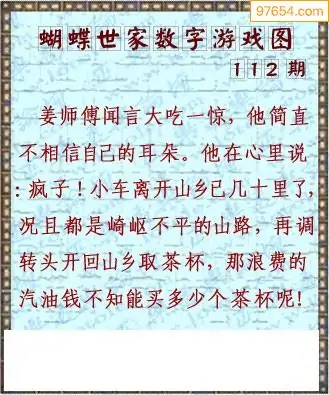 97654.com
蝴蝶世家数字游戏图
112期
姜师傅闻言大吃一惊，他简直
不相信自己的耳朵。他在心里说
：疯子！小车离开山乡已几十里了，
况且都是崎岖不平的山路，再调
转头开回山乡取茶杯，那浪费的
汽油钱不知能买多少个茶杯呢！